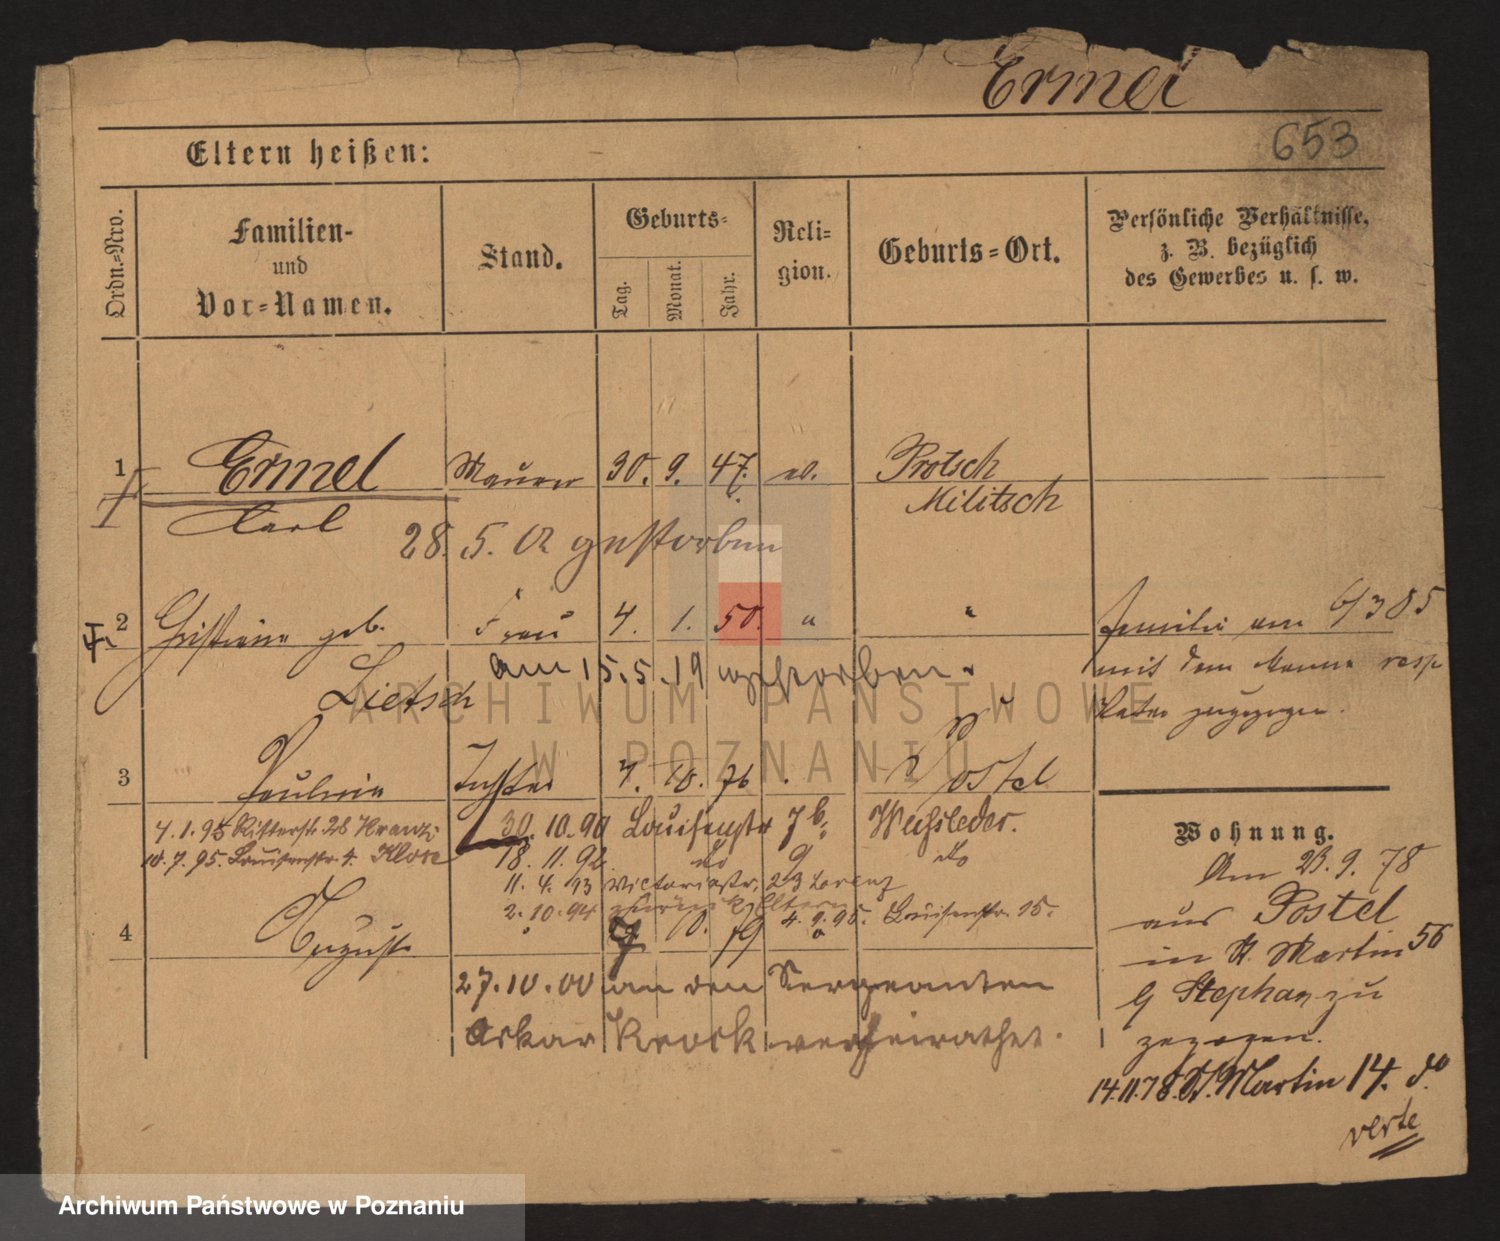 Ermel
653
Eltern heißen:
Ordn.-Nro.
Familien-
und
Vor-Namen.
Stand.
Geburts-
Tag.
Monat.
Jahr.
Reli-
gion.
Geburts-Ort.
Persönliche Verhältnisse,
z. B. bezüglich
des Gewerbes u. s. w.
1 Ermel Maurer 30. 9. 47. ev. Protsch
Militsch
Carl
28. 5. gestorben
2 geb. Frau 4. 1. 50. " " Familie am 6/3 85
Lietsch am 15.5.19 gestorben.
mit dem Manne resp
Vater zugezogen.
3 Pauline Tochter 7. 10. 76 Postel
4.1.95 Ritterstr. 28 Kranz
10.7.95. Louisenstr. 4. Klose
30.10.90 Louisenstr 7b. Wechsleder.
18.11.92 do 9 do
11.4.93 Victoriastr. 23 Lorenz
2.10.94 zurück Eltern
4.9.95. Louisenstr. 15.
4 August 10. 79
27.10.00 an den Sergeanten
Oskar Krock verheirathet.
Wohnung.
Am 23.9.78
aus Postel
in St. Martin 56
b Stephan zu
gezogen.
14.11.78. St. Martin 14. do
verte
ARCHIWUM PAŃSTWOWE
W POZNANIU
Archiwum Państwowe w Poznaniu